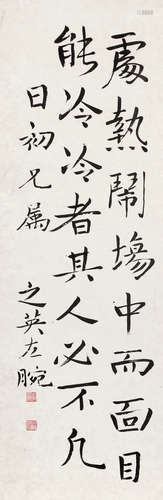 處熱鬧場中而面目
能冷冷者其人必不凡
日初兄属
之英左腕